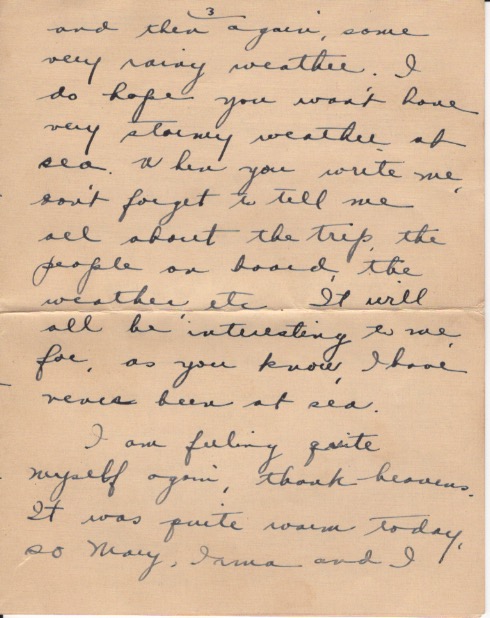 3
and then again, some
very rainy weather. I
do hope you won't have
very stormy weather at
sea. When you write me,
don't forget to tell me
all about the trip, the
people on board, the
weather etc. It will
all be interesting to me,
for, as you know, I have
never been at sea.
I am feeling quite
myself again, thank heavens.
It was quite warm today,
so Mary, Irma and I